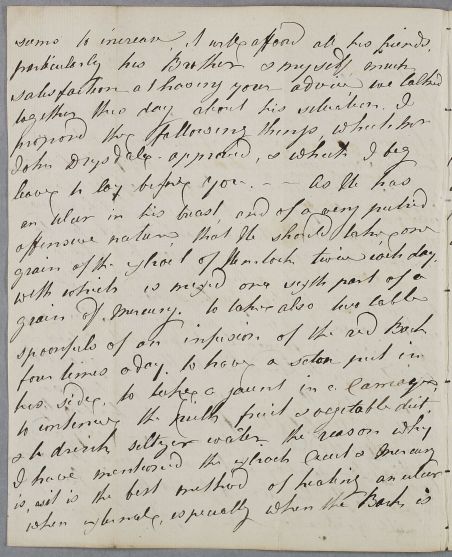 seems to increase, it will afford all his friends,
particularly his Brother & myself much
satisfaction at having your advice we talked
together this day about his situation. I
proposed the following things, which Mr
John Drysdale approved, & which I beg
leave to lay before you. – – As He has
an ulcer in his breast, and of a very putrid
offensive nature, that He should take one
grain of the extract of Hemlock twice each day,
with which is mixed one sixth part of a
grain of Mercury. to take also two table
spoonfuls of an infusion of the red Bark
four times a day. to have a seton put in
his side, to take a jaunt in a Carriage
to continue the milk fruit & vegetable diet
& to drink seltzer water. the reason why
I have mentioned the extract Cicut & Mercury
is, as it is the best method of healing an ulcer
when external, especially when the Bark is